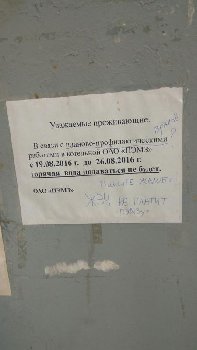 Уважаемые проживающие.
В связи с планово-профилактическими
работами в котельной ОАО «ПЭМЗ»
с 19.08.2016 г. до 26.08.2016 г.
горячая вода подаваться не будет.
ОАО «ПЭМЗ»
ЖЭУ НЕ ПЛАТИТ
ПЭМЗу